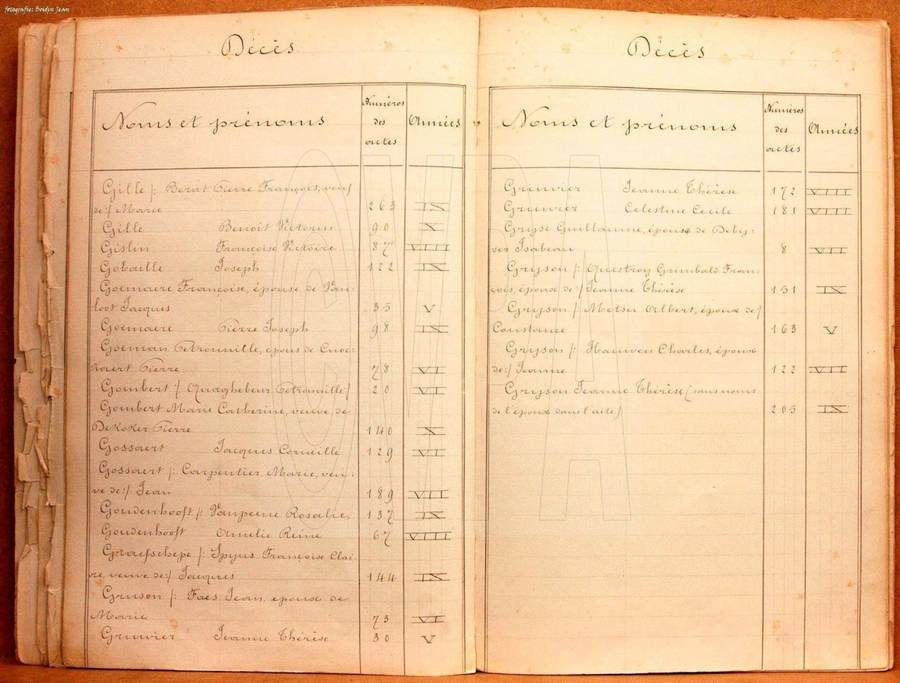 fotografie: Boidyn Jean
Décès
Noms et prénoms Numéros des actes Années
Gille /: Berat Pierre François, veuf
de :/ Marie 263 IX
Gille Benoit Victorin 90 X
Gislin Françoise Victoire 87 VIII
Gobaille Joseph 122 IX
Goemaere Françoise, épouse de Van-
loot Jacques 35 V
Goemaere Pierre Joseph 98 IX
Goeman Pétronille, épous de
Pierre 78 VI
Gombert /: Quaghebeur Pétronille / 20 VI
Gombert Marie Catherine, veuve de
DeKoker Pierre 140 X
Gossaert Jacques Corneille 129 VI
Gossaert /: Carpentier Marie, veu-
ve de :/ Jean 189 VII
Goudenhooft /: Rosalie, 137 IX
Goudenhooft Amelie Reine 67 VIII
Graefschepe /: Spyns Françoise Clai-
re, veuve de :/ Jacques 144 IX
Gruson /: Faes Jean, époux de
Marie 73 VI
Gruwier Jeanne Thérèse 30 V
Décès
Noms et prénoms Numéros des actes Années
Gruwier Jeanne Thérèse 172 VIII
Gruwier Celestine Cecile 181 VIII
Gryse Guillaume, époux de
Isabeau 8 VII
Gryson /: Questroy Grimbald Fran-
çois, époux de :/ Jeanne Thérèse 151 IX
Gryson /: Metsu Albert, époux de /
Constance 163 V
Gryson /: Hauwen Charles, époux
de :/ Jeanne 122 VII
Gryson Jeanne Thérèse (sans noms
de l'époux dans l'acte / 205 IX